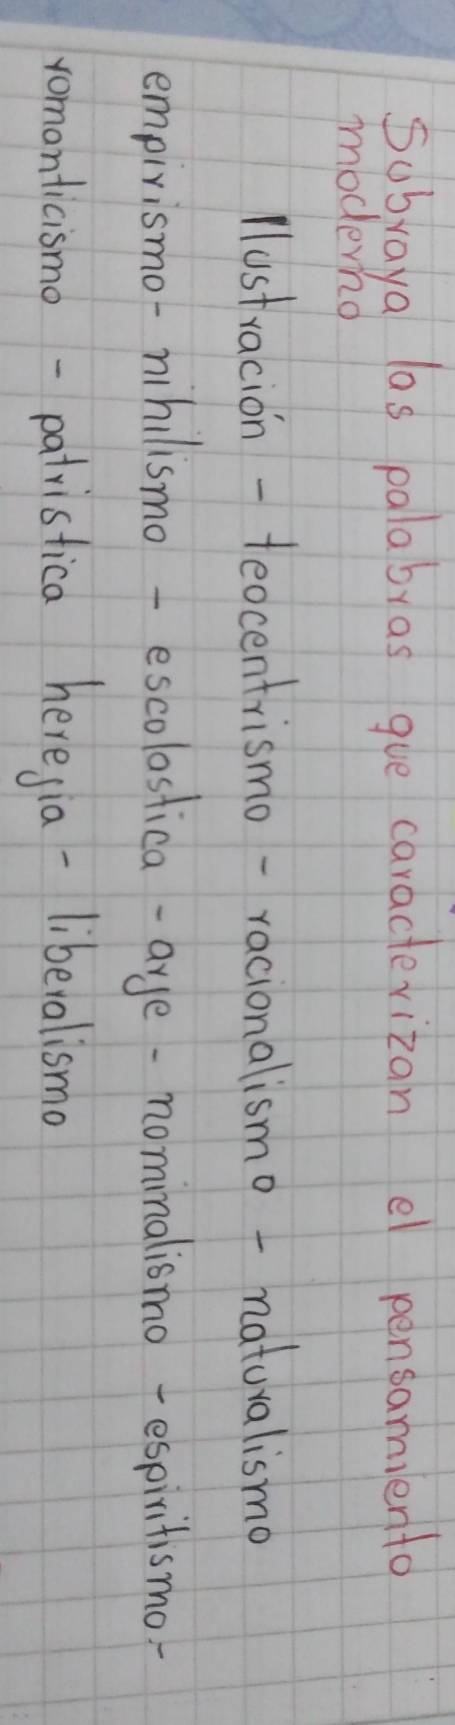 Subraya las palabras que caracterizan el pensamiento
moderno
Ilustración - teocentrismo - racionalismo - naturalismo
empirismo - nihilismo - escolastica - arje - nominalismo - espiritismo -
romanticismo - patristica herejia - liberalismo